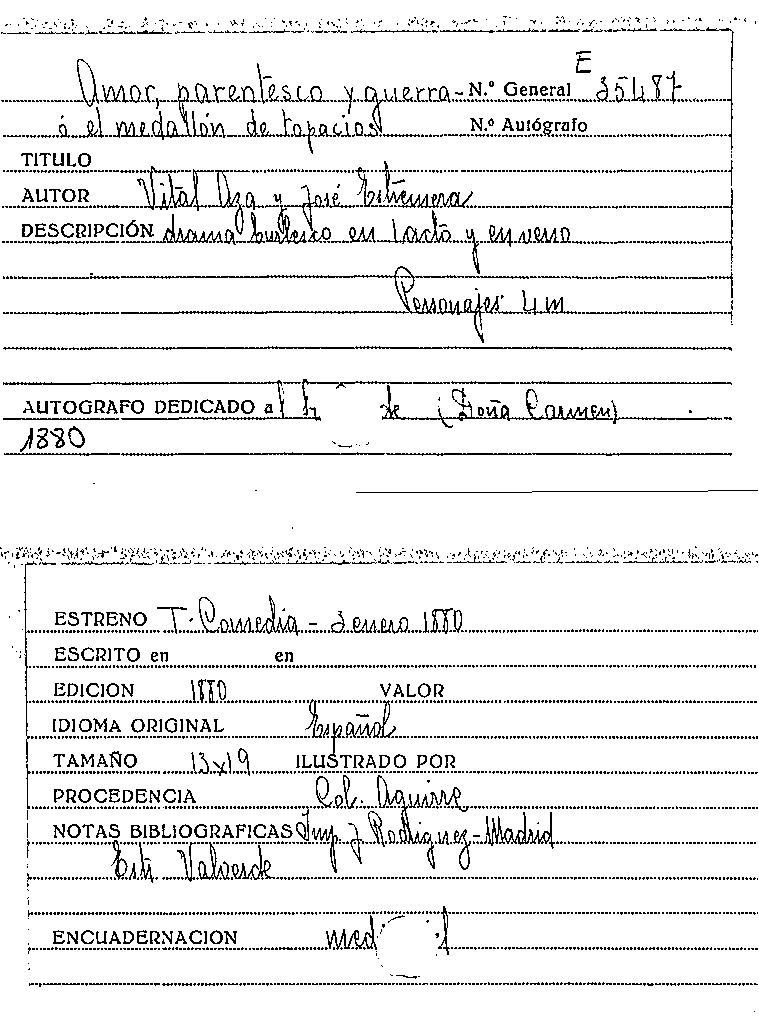 Amor, parentesco y guerra - N.º General E 35487
ó el medallón de topacios N.º Autógrafo
TITULO
AUTOR Vital Aza y José Estremera
DESCRIPCIÓN drama burlesco en 1 acto y en verso
Personajes 4 m
AUTOGRAFO DEDICADO a (Doña Carmen)
1880
ESTRENO T. Comedia - 3 enero 1880
ESCRITO en en
EDICION 1880 VALOR
IDIOMA ORIGINAL Español
TAMAÑO 13x19 ILUSTRADO POR
PROCEDENCIA Col. Aguirre
NOTAS BIBLIOGRAFICAS Imp. J. Rodriguez - Madrid
Valverde
ENCUADERNACION